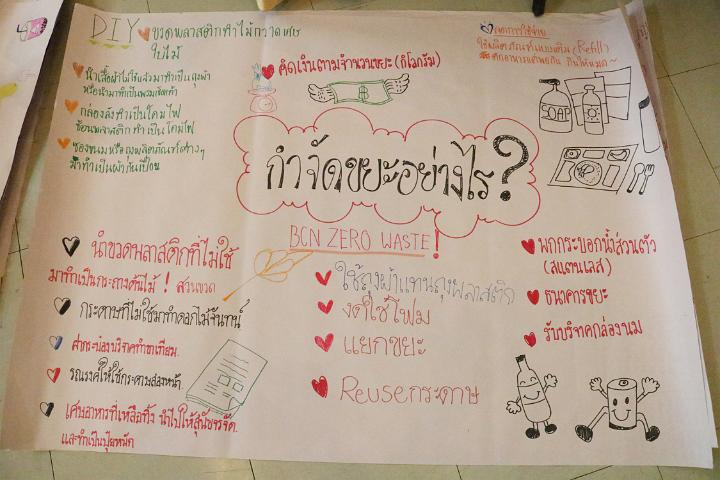 DIY
ขวดพลาสติกทำไม้กวาดเศษ
ใบไม้
นำเสื้อผ้าไม่ใช้แล้วมาทำเป็นถุงผ้า
หรือนำมาทำเป็นพรมเช็ดเท้า
กล่องลังทำเป็นโคมไฟ
ช้อนพลาสติกทำเป็นโคมไฟ
ซองขนมหรือถุงผลิตภัณฑ์ต่างๆ
มาทำเป็นผ้ากันเปื้อน
คิดเงินตามจำนวนขยะ (กิโลกรัม)
฿
ลดการใช้จ่าย
ใช้ผลิตภัณฑ์แบบเติม (Refill)
ตักอาหารแต่พอกิน กินให้หมด~
SOAP
กำจัดขยะอย่างไร?
BCN ZERO WASTE!
ใช้ถุงผ้าแทนถุงพลาสติก
งดใช้โฟม
แยกขยะ
Reuseกระดาษ
นำขวดพลาสติกที่ไม่ใช้
มาทำเป็นกระถางต้นไม้! สวนขวด
กระดาษที่ไม่ใช้มาทำดอกไม้จันทน์
ฝากระป๋องบริจาคทำขาเทียม
รณรงค์ให้ใช้กระดาษสองหน้า
เศษอาหารที่เหลือทิ้ง นำไปให้สุนัขจรจัด
และทำเป็นปุ๋ยหมัก
พกกระบอกน้ำส่วนตัว
(สแตนเลส)
ธนาคารขยะ
รับบริจาคกล่องนม